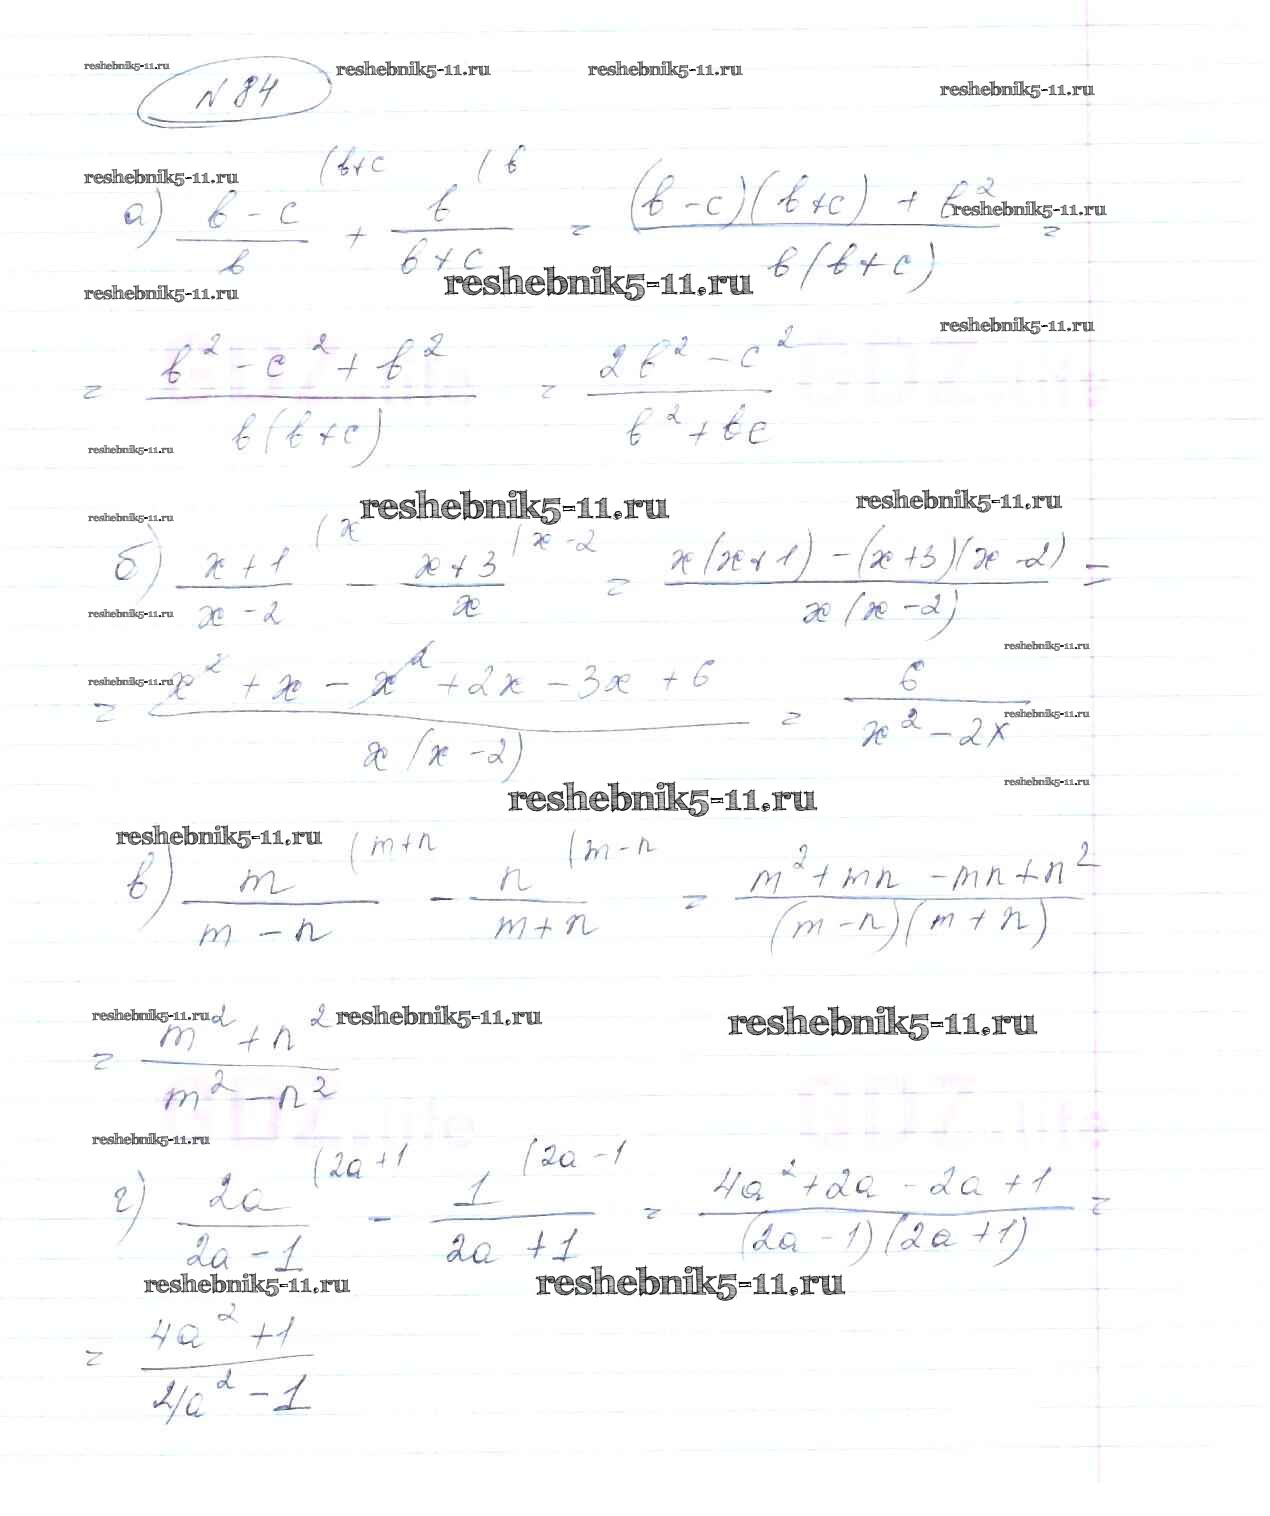 reshebnik5-11.ru reshebnik5-11.ru reshebnik5-11.ru
№ 84 reshebnik5-11.ru
reshebnik5-11.ru (b+c (b
а) (b-c)/b + b/(b+c) = ((b-c)(b+c) + b²)/(b(b+c)) = reshebnik5-11.ru
reshebnik5-11.ru reshebnik5-11.ru
reshebnik5-11.ru
= (b² - c² + b²)/(b(b+c)) = (2b² - c²)/(b² + bc)
reshebnik5-11.ru
reshebnik5-11.ru reshebnik5-11.ru reshebnik5-11.ru
(x (x-2
б) (x+1)/(x-2) - (x+3)/x = (x(x+1) - (x+3)(x-2))/(x(x-2)) =
reshebnik5-11.ru
reshebnik5-11.ru
reshebnik5-11.ru
= (x² + x - x² + 2x - 3x + 6)/(x(x-2)) = 6/(x² - 2x) reshebnik5-11.ru
reshebnik5-11.ru reshebnik5-11.ru
reshebnik5-11.ru (m+n (m-n
в) m/(m-n) - n/(m+n) = (m² + mn - mn + n²)/((m-n)(m+n))
reshebnik5-11.ru reshebnik5-11.ru reshebnik5-11.ru
= (m² + n²)/(m² - n²)
reshebnik5-11.ru
(2a+1 (2a-1
г) 2a/(2a-1) - 1/(2a+1) = (4a² + 2a - 2a + 1)/((2a-1)(2a+1)) =
reshebnik5-11.ru reshebnik5-11.ru
= (4a² + 1)/(4a² - 1)